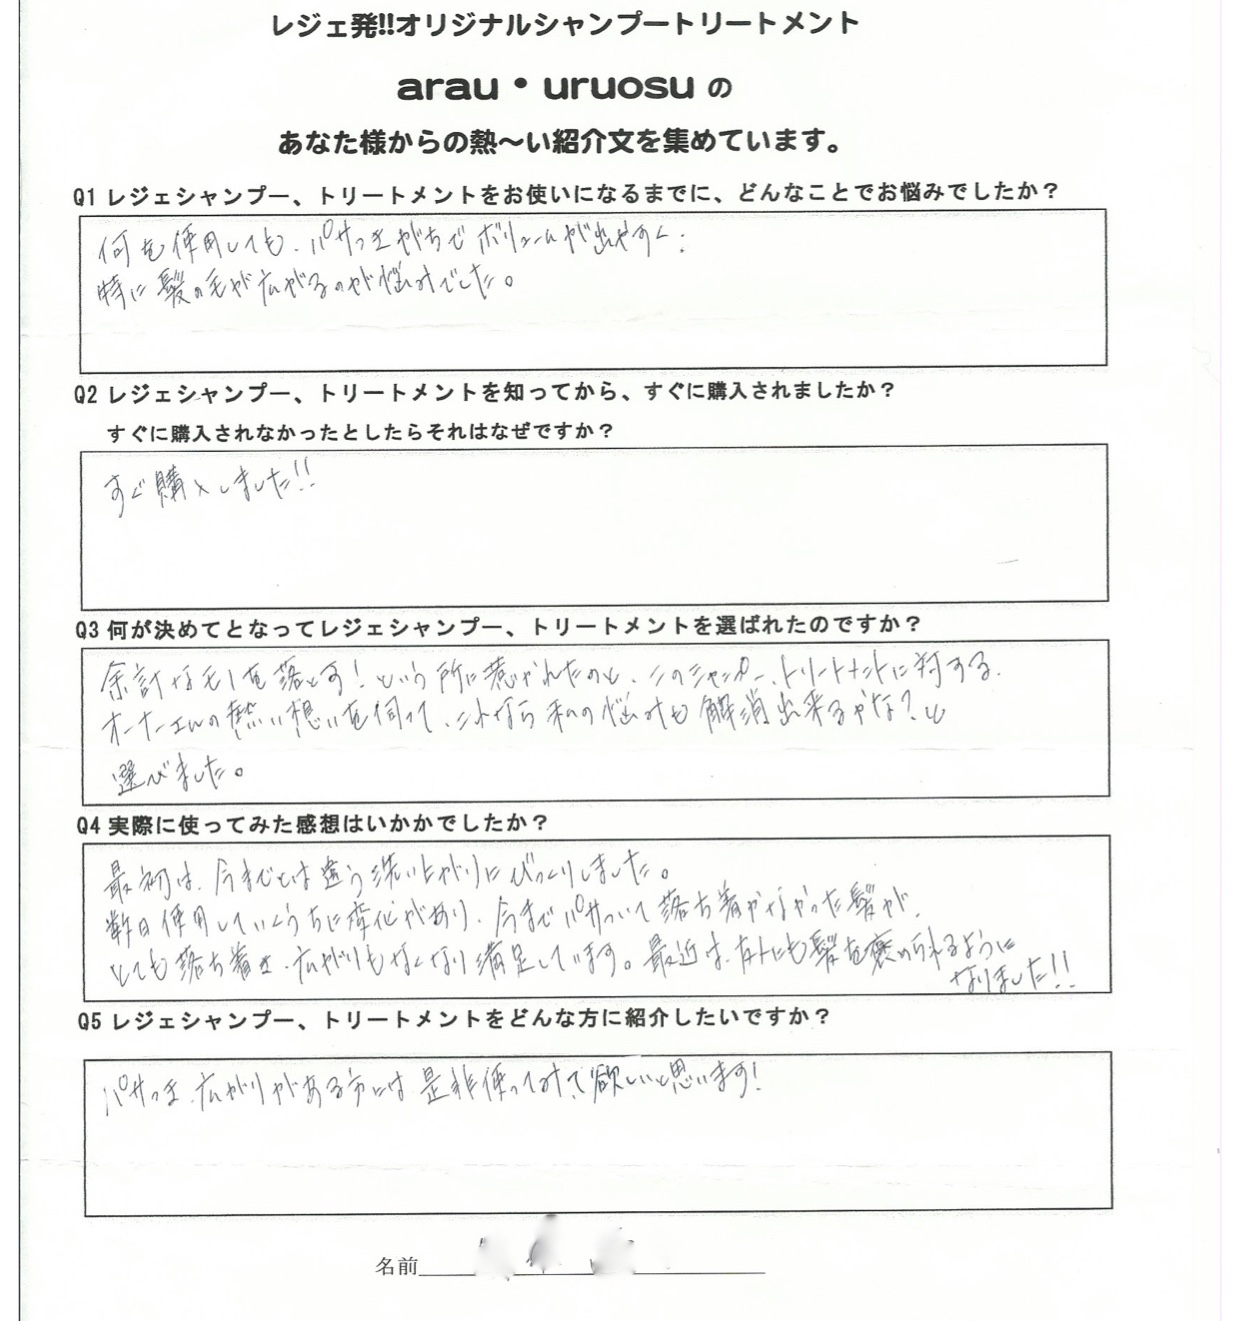 レジェ発!!オリジナルシャンプートリートメント
arau・uruosuの
あなた様からの熱～い紹介文を集めています。
Q1 レジェシャンプー、トリートメントをお使いになるまでに、どんなことでお悩みでしたか？
何を使用しても、パサつきがちでボリュームが出やすく:
特に髪の毛が広がるのが悩みでした。
Q2 レジェシャンプー、トリートメントを知ってから、すぐに購入されましたか？
すぐに購入されなかったとしたらそれはなぜですか？
すぐ購入しました!!
Q3 何が決めてとなってレジェシャンプー、トリートメントを選ばれたのですか？
余計なモノを落とす!という所に惹かれたのと、このシャンプー、トリートメントに対する、
オーナーさんの熱い想いを伺って、これなら私の悩みも解消出来るかな?と
選びました。
Q4 実際に使ってみた感想はいかかでしたか？
最初は、今までとは違う洗い上がりにびっくりしました。
数日使用していくうちに変化があり、今までパサついて落ち着かなかった髪が、
とても落ち着き、広がりもなくなり満足しています。最近は、友人にも髪を褒められるように
なりました!!
Q5 レジェシャンプー、トリートメントをどんな方に紹介したいですか？
パサつき、広がりがある方には是非使ってみて欲しいと思います!
名前